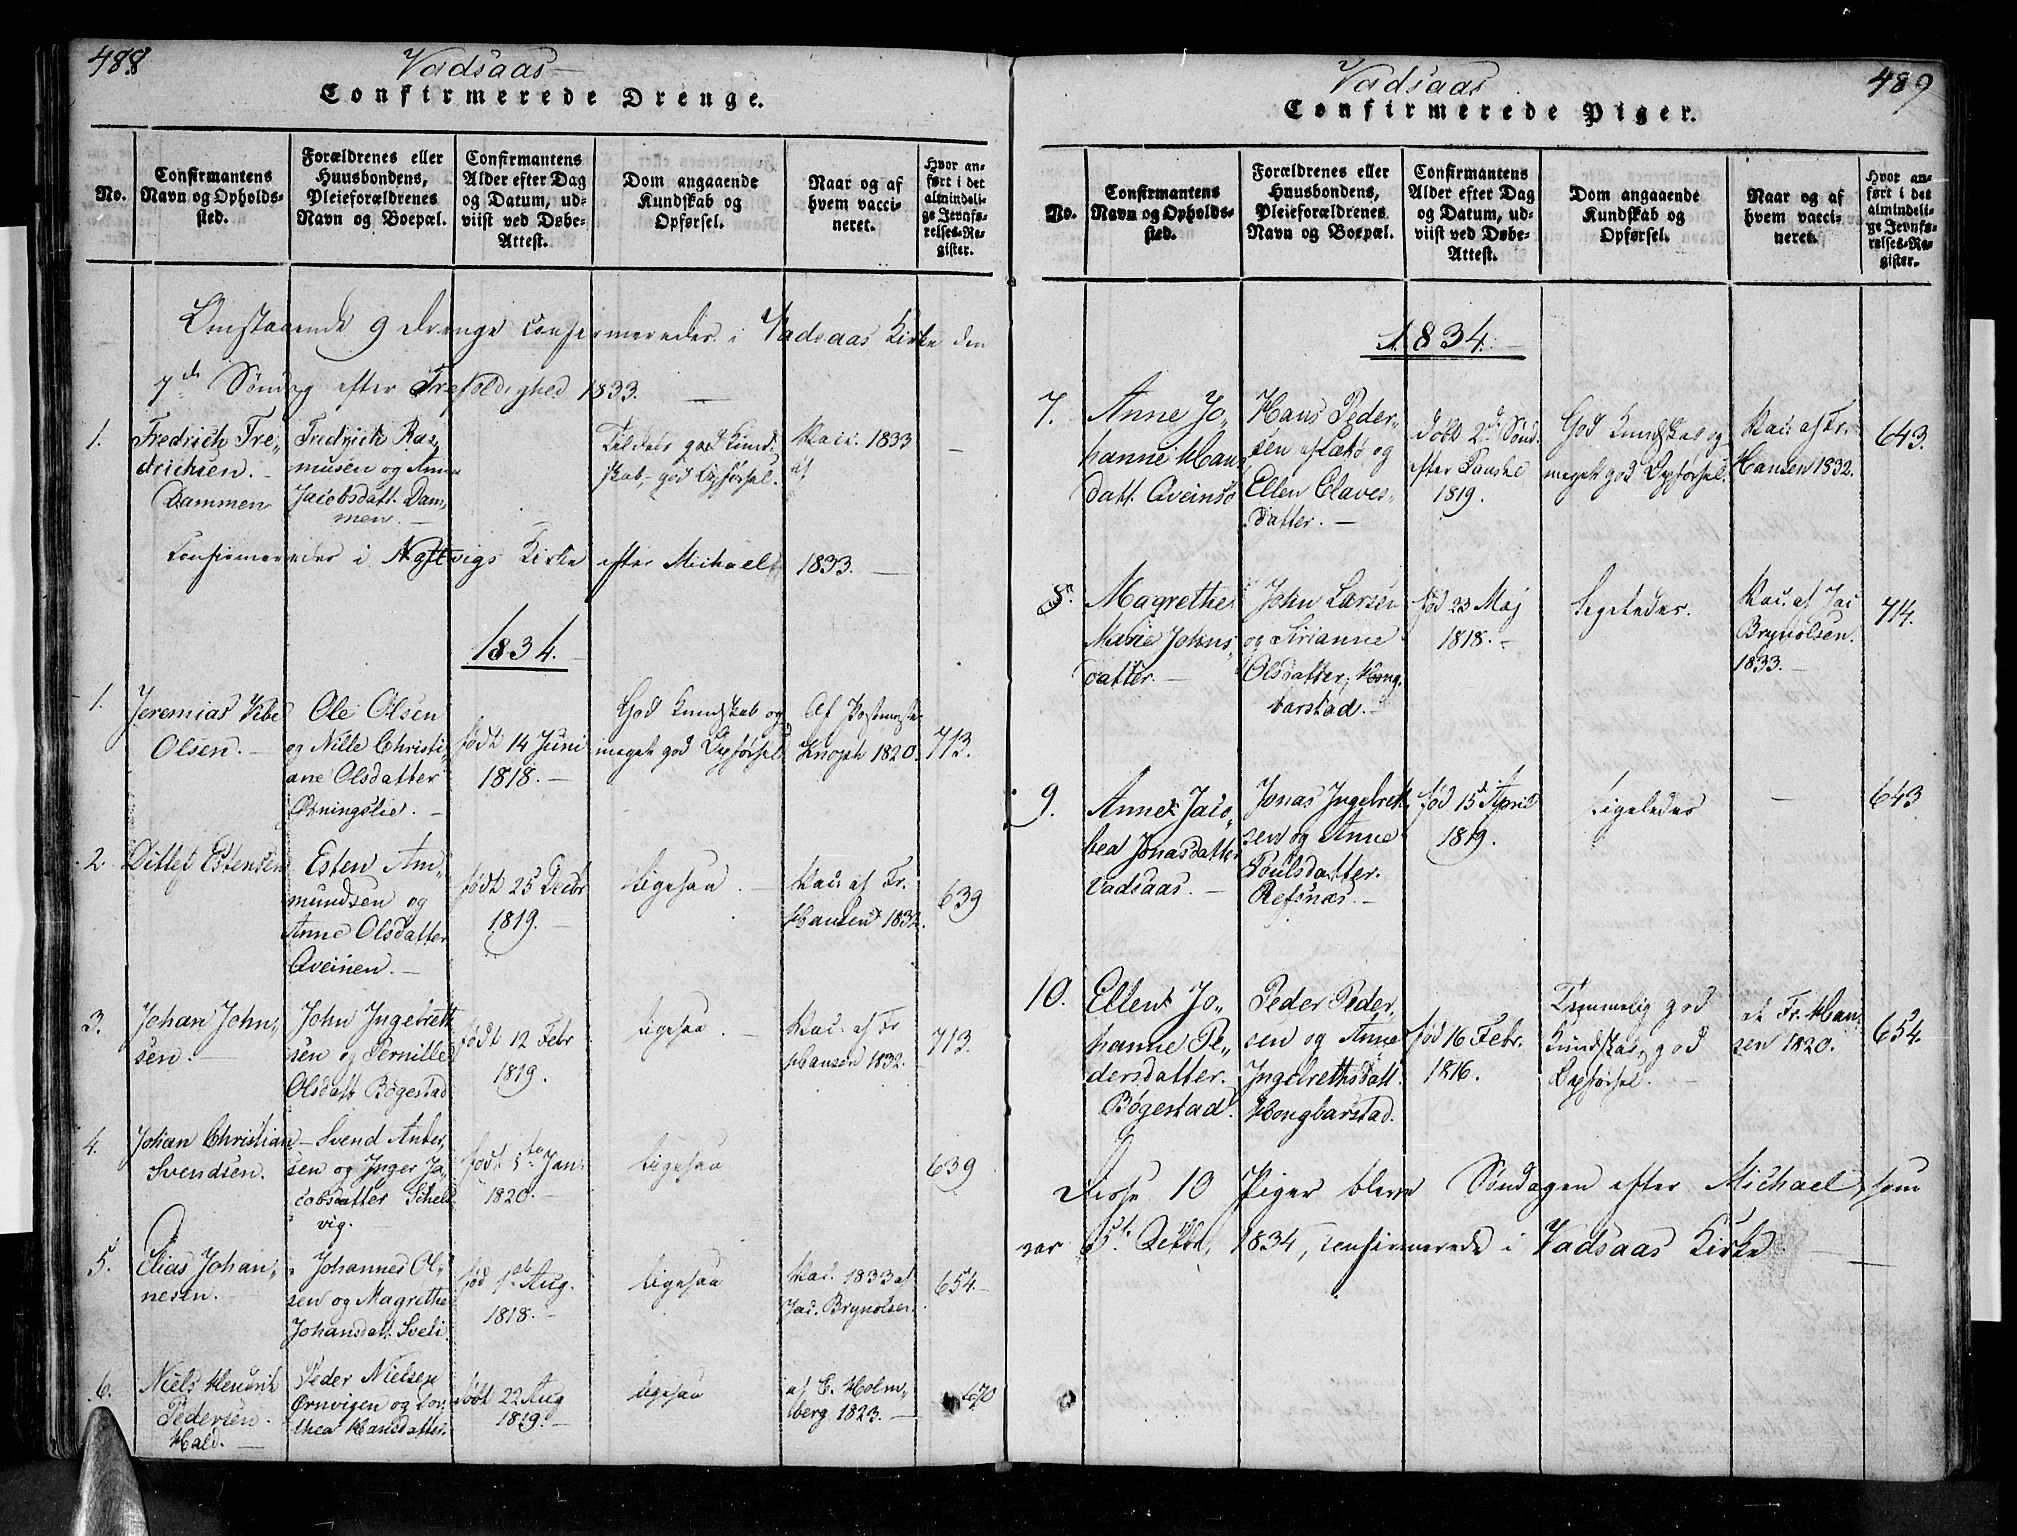 488
Vadsaas
Confirmerede Drenge.
No.
Confirmantens
Navn og Opholds-
sted.
Forældrenes eller
Huusbondens,
Pleieforældrenes
Navn og Boepæl.
Confirmantens
Alder efter Dag
og Datum, ud-
viist ved Døbe-
Attest.
Dom angaaende
Kundskab og
Opførsel.
Naar og af
hvem vacci-
neret.
Hvor an-
ført i det
almindeli-
ge Jevnfø-
relses-Re-
gister.
Omstaaende 9 Drenge confirmeredes i Vadsaas Kirke den
7de Søndag efter Trefoldighed 1833.
1.
Fredrich Fre-
drichsen.
Dammen
Fredrich Ras-
musen og Anne
Jacobsdatt. Dam-
men.
Tildels god Kund-
skab, god Opførsel.
Vacc. 1833
af
Confirmeredes i Kirke efter Michaeli 1833.
1834.
1.
Jeremias Vibe
Olsen.
Ole Olsen
og Nille Christi-
ane Olsdatter
født 14 Juni
1818.
God Kundskab og
meget god Opførsel
Af Postmester
Knoph 1820.
713.
2.
Ditlef Estensen
Esten Am-
mundsen og
Anne Olsdatter
Aveinen.
født 25 Decbr
1819.
ligesaa.
Vac. af Fr.
Hansen 1832.
639
3.
Johan John-
sen.
John Ingebreth
sen og Pernille
Olsdatt. Bøgestad
født 12 Febr
1819.
ligesaa.
Vac. af Fr
Hansen 1832.
713.
4.
Johan Christian
Svendsen.
Svend Ander-
sen og Inger Ja-
cobsdatter Schel-
vig.
født 5te Jan.
1820.
ligesaa
639
5.
Elias Johan-
nesen.
Johannes Ol-
sen og Magrethe
Johansdatt. Sveli
fød 1ste Aug.
1818.
ligesaa
Vac. 1833 af
Jac. Brynolsen.
654.
6.
Niels Hendrik
Pedersen.
Hald.
Peder Nielsen
Ørnvigen og Dor-
thea Hansdatter.
født 22 Aug
1819.
ligesaa
af C. Holm-
berg 1823.
670
489
Vadsaas
Confirmerede Piger.
No.
Confirmantens
Navn og Opholds-
sted.
Forældrenes eller
Huusbondens,
Pleieforældrenes
Navn og Boepæl.
Confirmantens
Alder efter Dag
og Datum, ud-
viist ved Døbe-
Attest.
Dom angaaende
Kundskab og
Opførsel.
Naar og af
hvem vacci-
neret.
Hvor an-
ført i det
almindeli-
ge Jevnfø-
relses-Re-
gister.
1834.
7.
Anne Jo-
hanne Hans
datt.
Hans Peder-
sen og
Ellen Claves-
datter.
døbt 2den Sønd.
efter Paaske
1819.
God Kundskab og
meget god Opførsel.
Vac. af Fr.
Hansen 1832.
643.
8.
Magrethe
Marie Johns-
datter.
John Larsen
og Sirianne
Olsdatter, Hong-
barstad.
fød 23 Maj
1818.
Ligeledes.
Vac. af Jac
Brynolsen.
1833.
714.
9.
Anne Jaco-
bea Jonasdatter
Vadsaas.
Jonas Ingebreth
sen og Anne
Poulsdatter.
Refsnæs.
fød 15de April
1819.
Ligeledes
643
10.
Ellen Jo-
hanne Pe-
dersdatter.
Bøgestad.
Peder Peder-
sen og Anne
Ingebrethsdatt.
Hongbarstad.
fød 16 Febr.
1816.
Temmelig god
Kundskab, god
Opførsel.
af Fr. Han-
sen 1820.
654.
Disse 10 Piger bleve Søndagen efter Michaeli, som
var 5te Octbr, 1834, confirmerede i Vadsaas Kirke